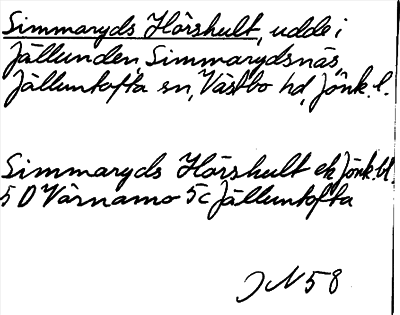 Simmaryds Hörshult, udde i
Jällunden, Simmarydsnäs,
Jälluntofta sn, Västbo hd, Jönk. l.
Simmaryds Hörshult ek Jönk. bl.
5 D Värnamo 5c Jälluntofta
JN 58